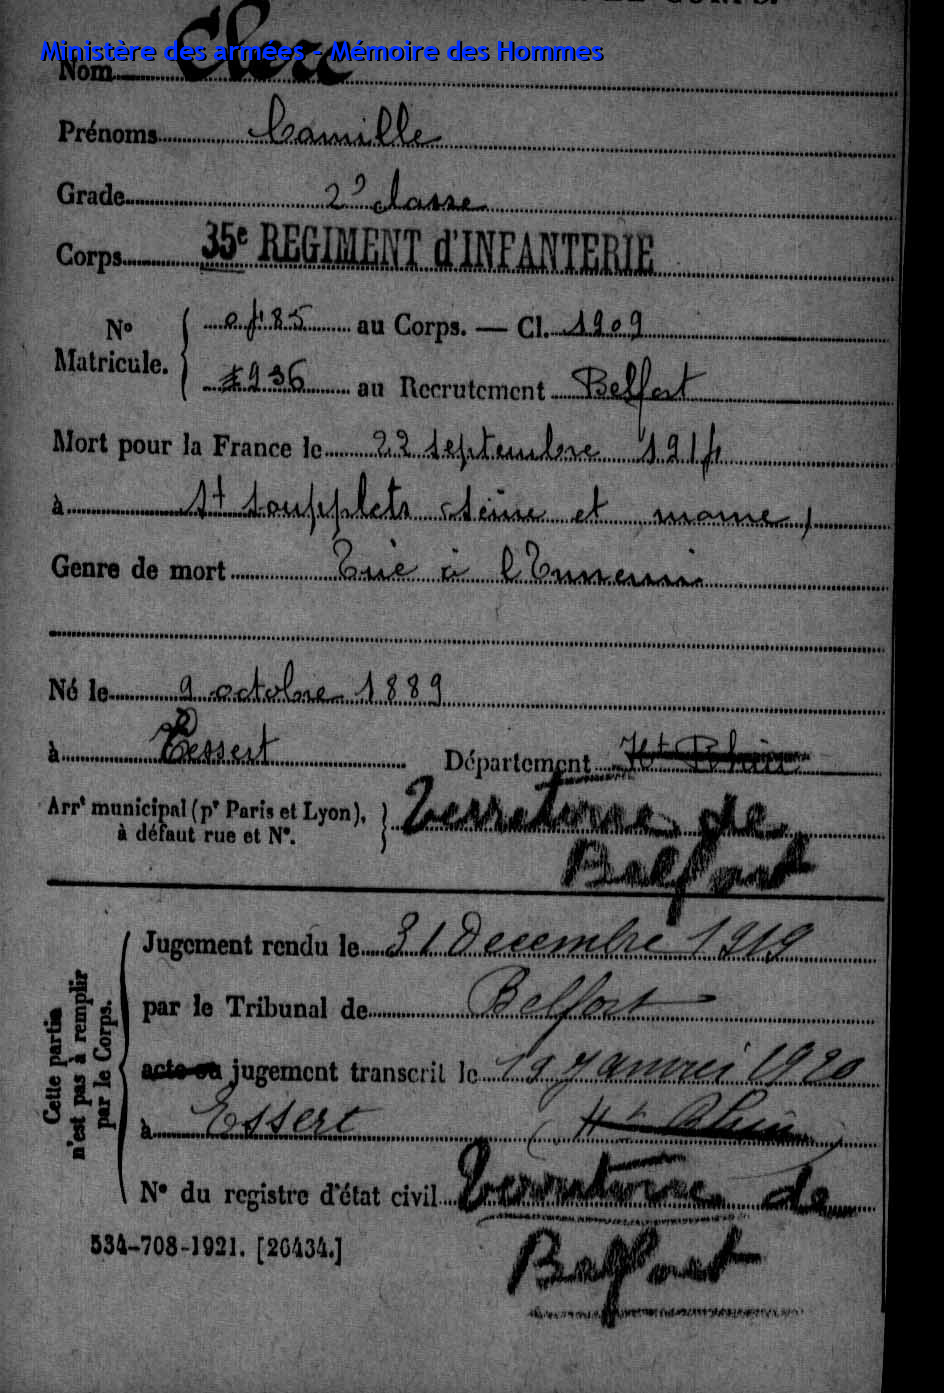 Ministère des armées - Mémoire des Hommes
Nom Clerc
Prénoms Camille
Grade 2e classe
Corps 35e REGIMENT d'INFANTERIE
No Matricule. 0485 au Corps. — Cl. 1909
936 au Recrutement Belfort
Mort pour la France le 22 septembre 1914
à St Soupplets (Seine et Marne)
Genre de mort Tué à l'Ennemi
Né le 9 octobre 1889
à Essert Département Ht Rhin
Arrt municipal (pr Paris et Lyon), à défaut rue et No. Territoire de
Belfort
Cette partie n'est pas à remplir par le Corps.
Jugement rendu le 31 Decembre 1919
par le Tribunal de Belfort
acte ou jugement transcrit le 19 Janvier 1920
à Essert (Ht Rhin)
No du registre d'état civil Territoire de
534-708-1921. [26434.] Belfort